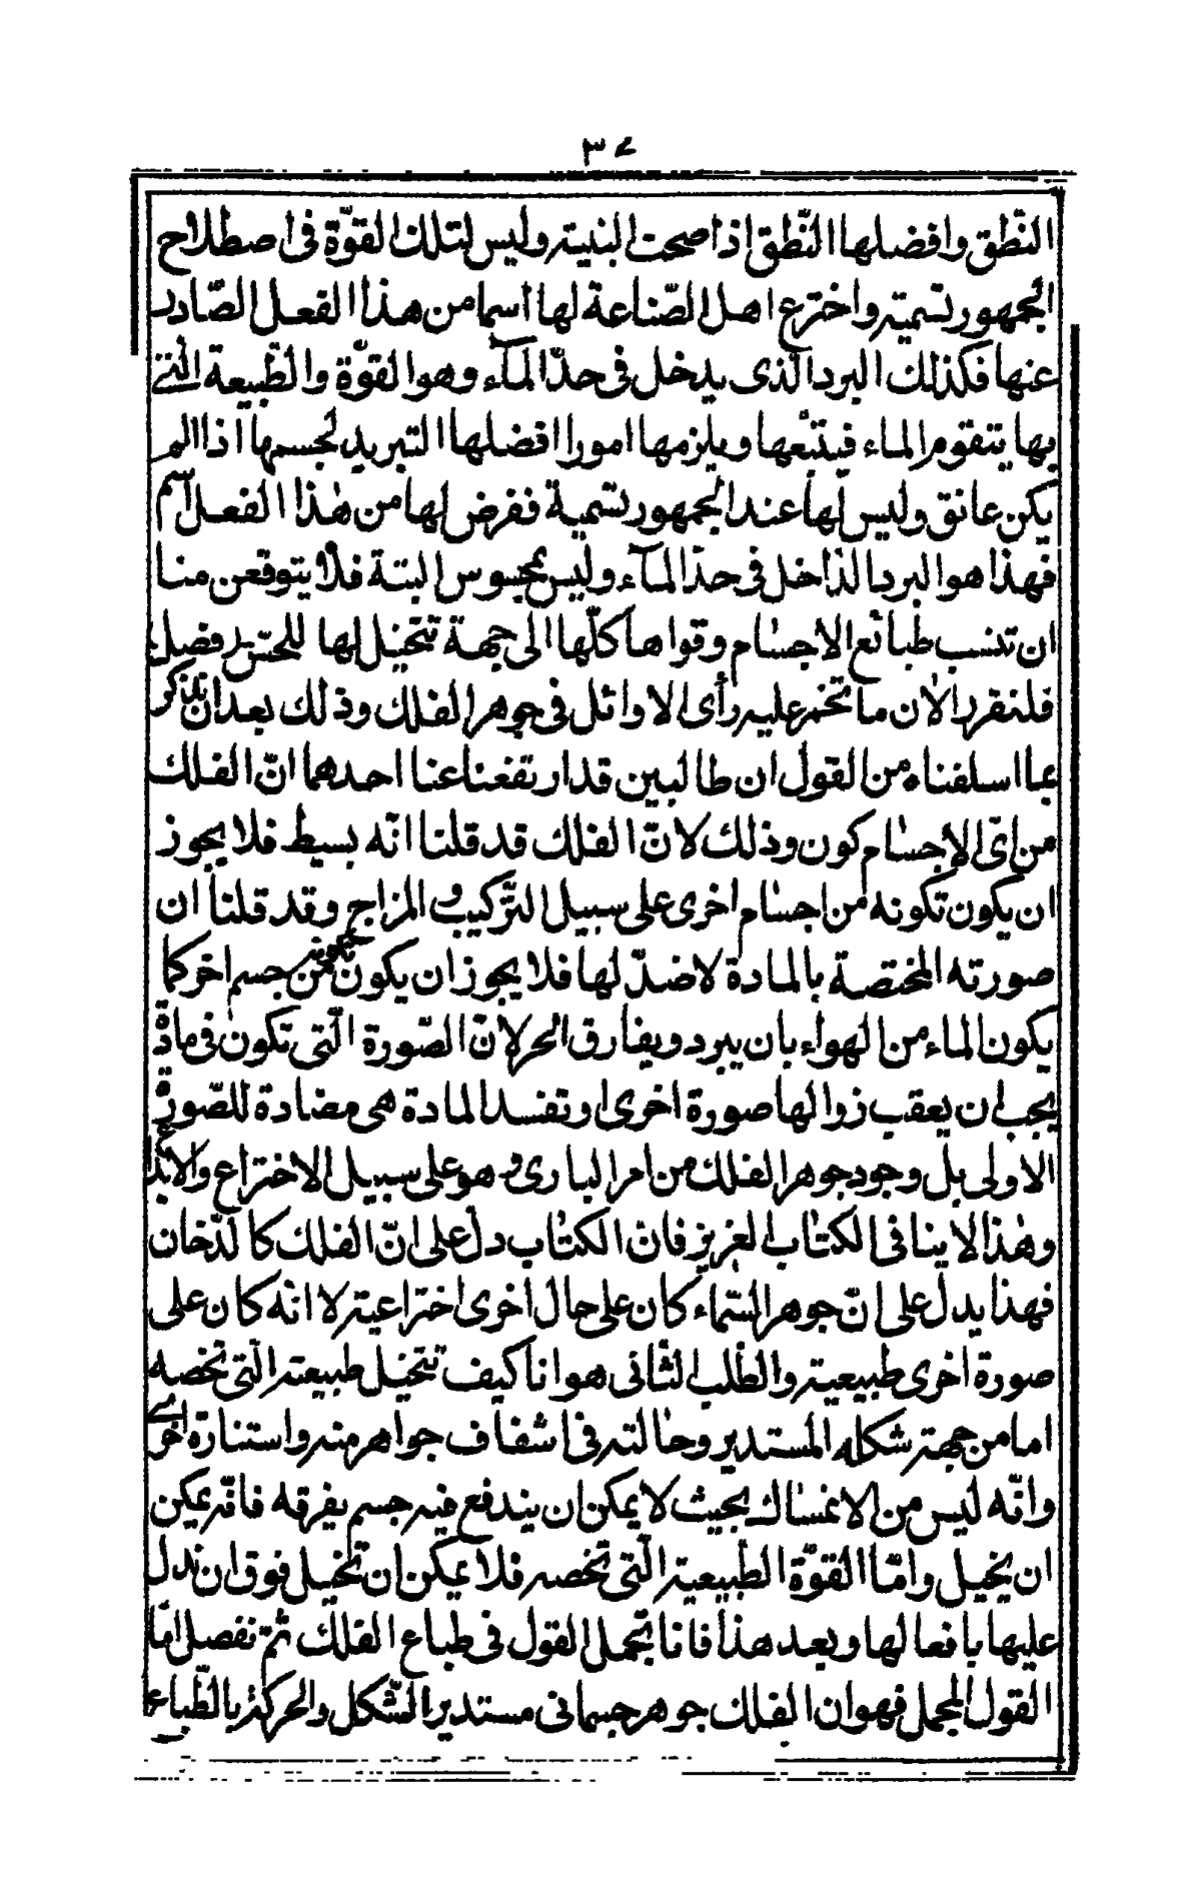 ٣٤
النّطق وافضلها النّطق اذا صحت البنية وليس لتلك القوّة فى اصطلاح
الجمهور تسمية واخترع اهل الصّناعة لها اسما من هذا الفعل الصّادر
عنها فكذلك البرد الّذى يدخل فى حدّ المآء وهو القوّة والطّبيعة الّتى
بها يتقوم الماء فيتبعها ويلزمها امورا افضلها التبريد لجسمها اذا لم
يكن عائق وليس لها عند الجمهور تسمية ففرض لها من هذا الفعل اسم
فهذا هو البرد الداخل فى حدّ المآء وليس بمحسوس البتة فلا يتوقعن منا
ان تنسب طبائع الاجسام وقواها كلّها الى جهة تتخيل لها للحسّ فضل
فلنقرر الآن ما تخمر عليه رأى الاوائل فى جوهر الفلك وذلك بعد ان نذكر
عما اسلفناه من القول ان طالبين قد ارتفعنا عنا احدهما انّ الفلك
من اىّ الاجسام كون وذلك لانّ الفلك قد قلنا انّه بسيط فلا يجوز
ان يكون تكونه من اجسام اخرى على سبيل التّركيب و المزاج وقد قلنا ان
صورته المختصة بالمادة لا ضدّ لها فلا يجوز ان يكون تكونه من جسم اخر كما
يكون الماء من الهواء بان يبرد ويفارق الحر لانّ الصّورة الّتى تكون فى مادّة
يجب ان يعقب زوالها صورة اخرى او تفسد المادة هى مضادة للصّورة
الاولى بل وجود جوهر الفلك من امر البارى وهو على سبيل الاختراع والابداع
وهذا لا ينافى الكتاب العزيز فان الكتاب دلّ على انّ الفلك كالدّخان
فهذا يدل على انّ جوهر السّماء كان على حال اخرى اختراعية لا انّه كان على
صورة اخرى طبيعية والطّلب الثّانى هو انا كيف نتخيل طبيعته الّتى تخصه
اما من جهة شكله المستدير وحالته فى اشفاف جواهر منه واستنارة اخرى
وانّه ليس من الانمساك بحيث لا يمكن ان يندفع فيه جسم يفرقه فانّه يمكن
ان يخيل وامّا القوّة الطّبيعية الّتى تخصه فلا يمكن ان تخيل فوق ان ندل
عليها بافعالها وبعد هذا فانا نجمل القول فى طباع الفلك ثمّ نفصل امّا
القول المجمل فهو ان الفلك جوهر جسمانى مستدير الشّكل والحركة بالطّباع